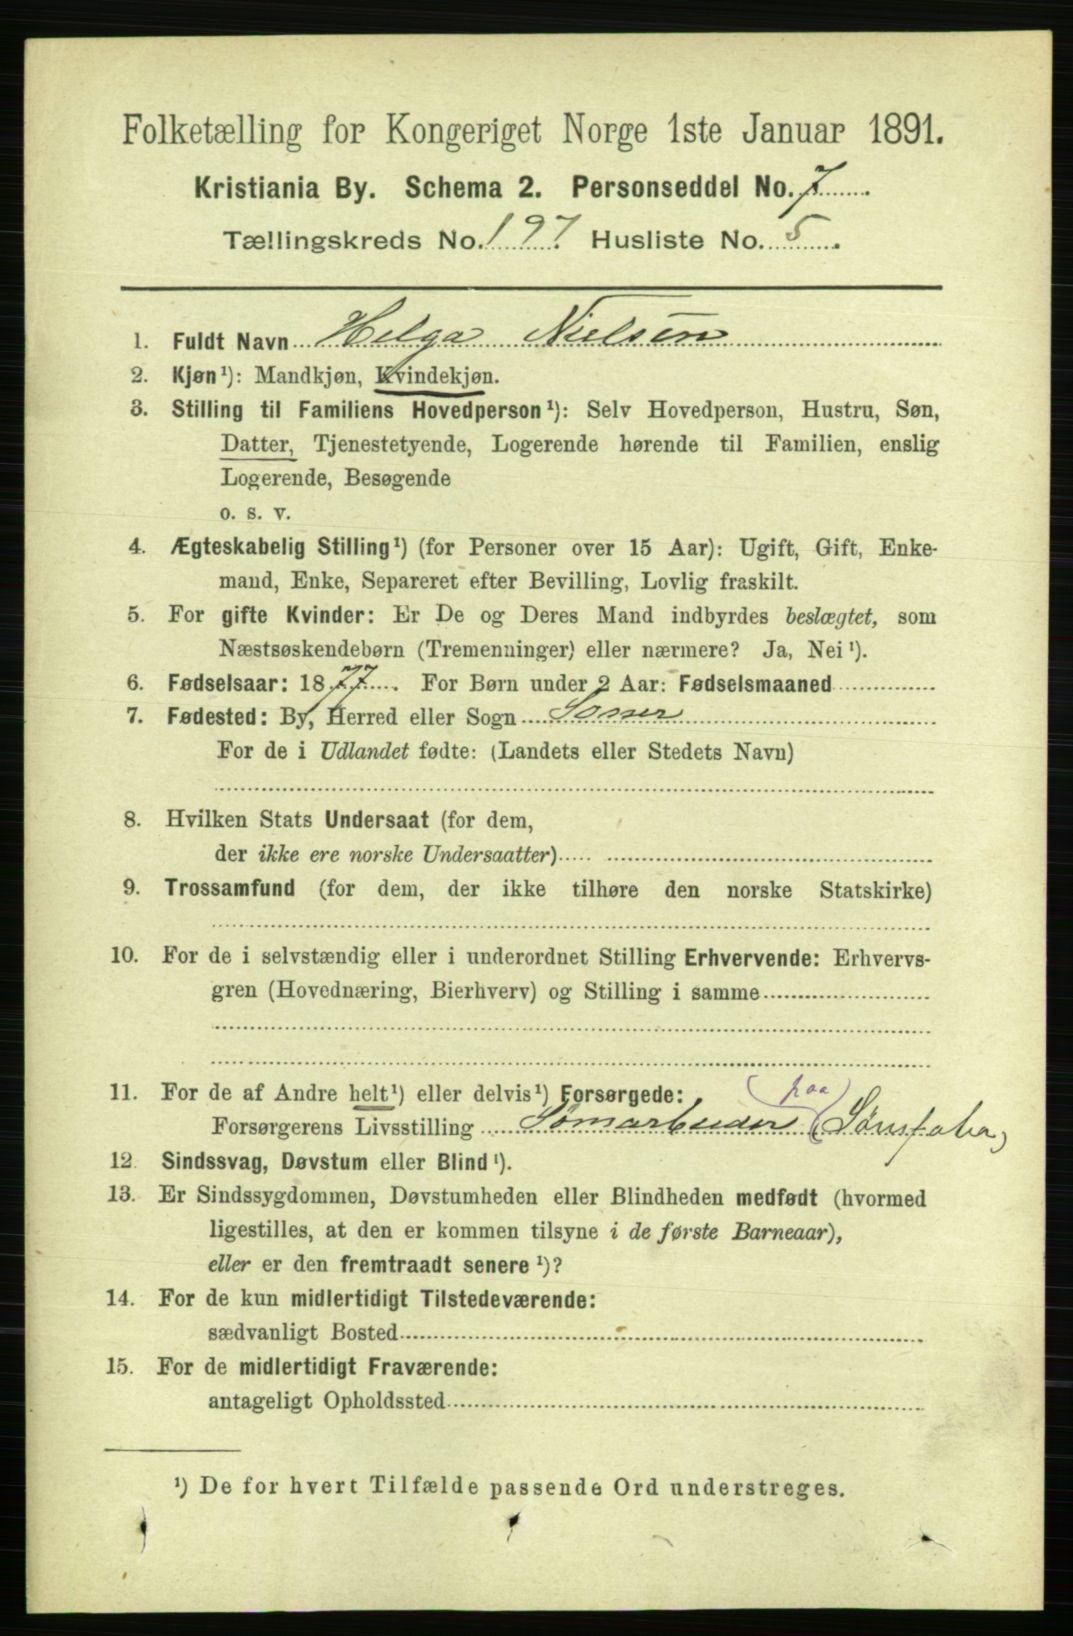 Folketælling for Kongeriget Norge 1ste Januar 1891.
Kristiania By. Schema 2. Personseddel No. 7
Tællingskreds No. 197 Husliste No. 5
1. Fuldt Navn Helga Nielsen
2. Kjøn¹): Mandkjøn, Kvindekjøn.
3. Stilling til Familiens Hovedperson¹): Selv Hovedperson, Hustru, Søn,
Datter, Tjenestetyende, Logerende hørende til Familien, enslig
Logerende, Besøgende
o. s. v.
4. Ægteskabelig Stilling¹) (for Personer over 15 Aar): Ugift, Gift, Enke-
mand, Enke, Separeret efter Bevilling, Lovlig fraskilt.
5. For gifte Kvinder: Er De og Deres Mand indbyrdes beslægtet, som
Næstsøskendebørn (Tremenninger) eller nærmere? Ja, Nei¹).
6. Fødselsaar: 1877. For Børn under 2 Aar: Fødselsmaaned
7. Fødested: By, Herred eller Sogn
For de i Udlandet fødte: (Landets eller Stedets Navn)
8. Hvilken Stats Undersaat (for dem,
der ikke ere norske Undersaatter)
9. Trossamfund (for dem, der ikke tilhøre den norske Statskirke)
10. For de i selvstændig eller i underordnet Stilling Erhvervende: Erhvervs-
gren (Hovednæring, Bierhverv) og Stilling i samme
11. For de af Andre helt¹) eller delvis¹) Forsørgede: (paa)
Forsørgerens Livsstilling Sømarbeider
12. Sindssvag, Døvstum eller Blind¹).
13. Er Sindssygdommen, Døvstumheden eller Blindheden medfødt (hvormed
ligestilles, at den er kommen tilsyne i de første Barneaar),
eller er den fremtraadt senere¹)?
14. For de kun midlertidigt Tilstedeværende:
sædvanligt Bosted
15. For de midlertidigt Fraværende:
antageligt Opholdssted
¹) De for hvert Tilfælde passende Ord understreges.